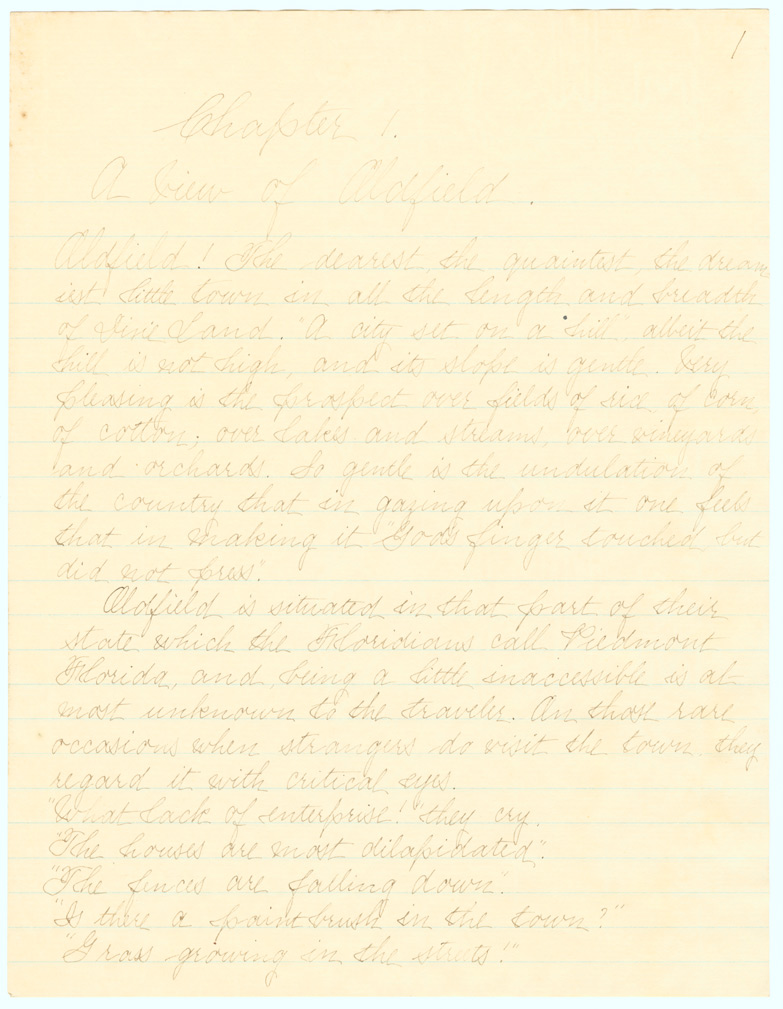 1
Chapter 1.
A View of Aldfield.
Aldfield! The dearest, the quaintest, the dream-
iest little town in all the length and breadth
of Dixie Land. "A city set on a hill", albeit the
hill is not high, and its slope is gentle. Very
pleasing is the prospect over fields of rice, of corn,
of cotton; over lakes and streams, over vineyards
and orchards. So gentle is the undulation of
the country that in gazing upon it one feels
that in making it "God's finger touched, but
did not press".
Aldfield is situated in that part of their
state which the Floridians call Piedmont
Florida, and, being a little inaccessible is al-
most unknown to the traveler. On those rare
occasions when strangers do visit the town, they
regard it with critical eyes.
"What lack of enterprise!" they cry.
"The houses are most dilapidated".
"The fences are falling down".
"Is there a paint brush in the town?"
"Grass growing in the streets!"